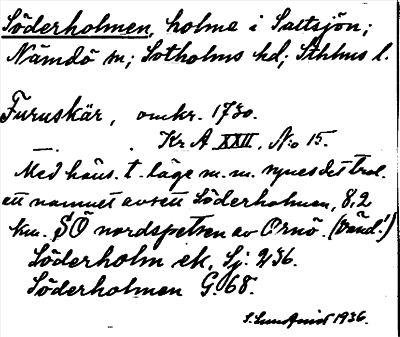 Söderholmen, holme i Saltsjön;
Nämdö sn; Sotholms hd; Sthlms l.
Furuskär, omkr. 1730.
Kr A XXII, N:o 15.
Med häns. t. läge m. m. synes det trol.
att namnet avsett Söderholmen, 8,2
km. SÖ nordspetsen av Ornö. (Vänd!)
Söderholm ek, Sj. 236.
Söderholmen G. 68.
1936.